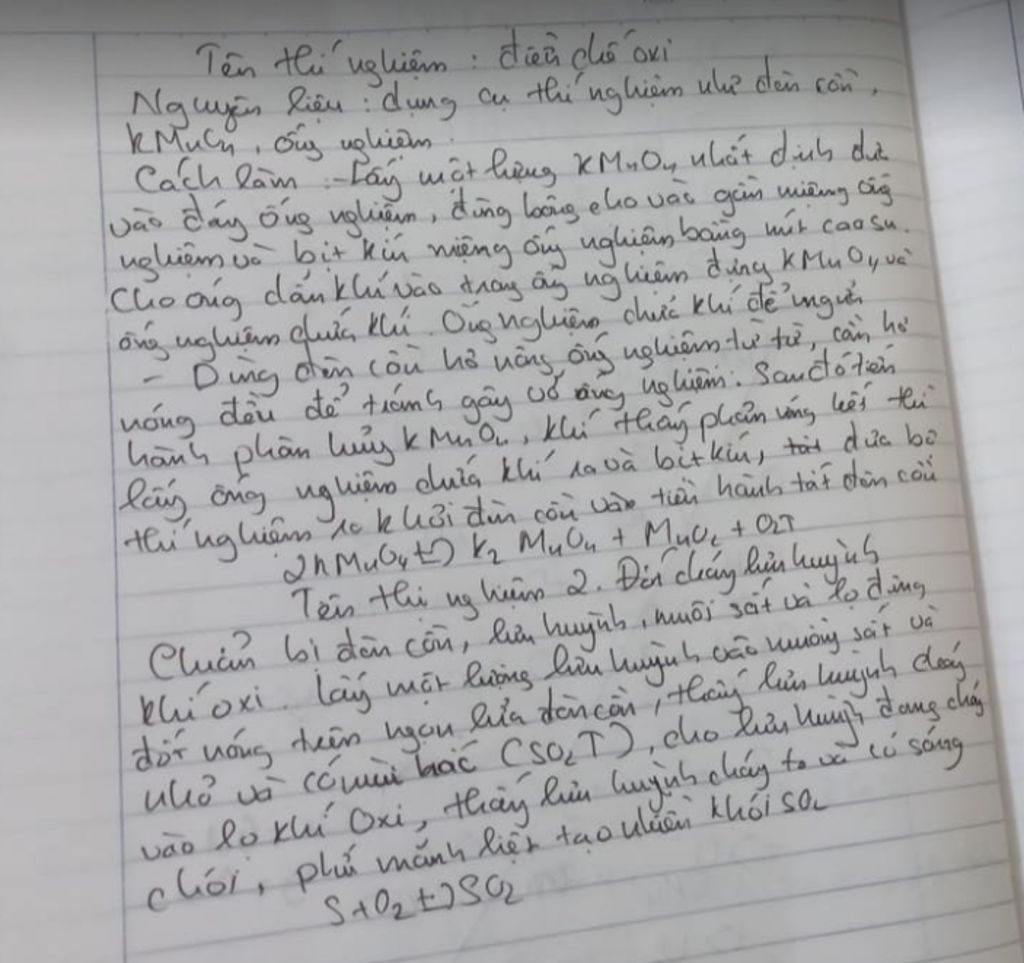 Tên thí nghiệm : điều chế oxi
Nguyên liệu : dụng cụ thí nghiệm như đèn cồn,
KMnO4, ống nghiệm.
Cách làm : - Lấy một lượng KMnO4 nhất định đưa
vào đáy ống nghiệm, dùng bông cho vào gần miệng ống
nghiệm và bịt kín miệng ống nghiệm bằng nút cao su.
Cho ống dẫn khí vào trong ống nghiệm đựng KMnO4 và
ống nghiệm chứa khí. Ống nghiệm chứa khí để ngửa
- Dùng đèn cồn hơ nóng ống nghiệm từ từ, cần hơ
nóng đều để tránh gây vỡ ống nghiệm. Sau đó tiến
hành phân hủy KMnO4, khi thấy phản ứng hết thì
lấy ống nghiệm chứa khí ra và bịt kín, đưa bộ
thí nghiệm ra khỏi đèn cồn và tiến hành tắt đèn cồn
2KMnO4 t→ K2MnO4 + MnO2 + O2↑
Tên thí nghiệm 2. Đốt cháy lưu huỳnh
Chuẩn bị đèn cồn, lưu huỳnh, muôi sắt và lọ đựng
khí oxi. Lấy một lượng lưu huỳnh vào muỗng sắt và
đốt nóng trên ngọn lửa đèn cồn, thấy lưu huỳnh cháy
nhỏ và có mùi hắc (SO2↑), cho lưu huỳnh đang cháy
vào lọ khí Oxi, thấy lưu huỳnh cháy to và có sáng
chói, phản mãnh liệt tạo nhiều khói SO2
S + O2 t→ SO2